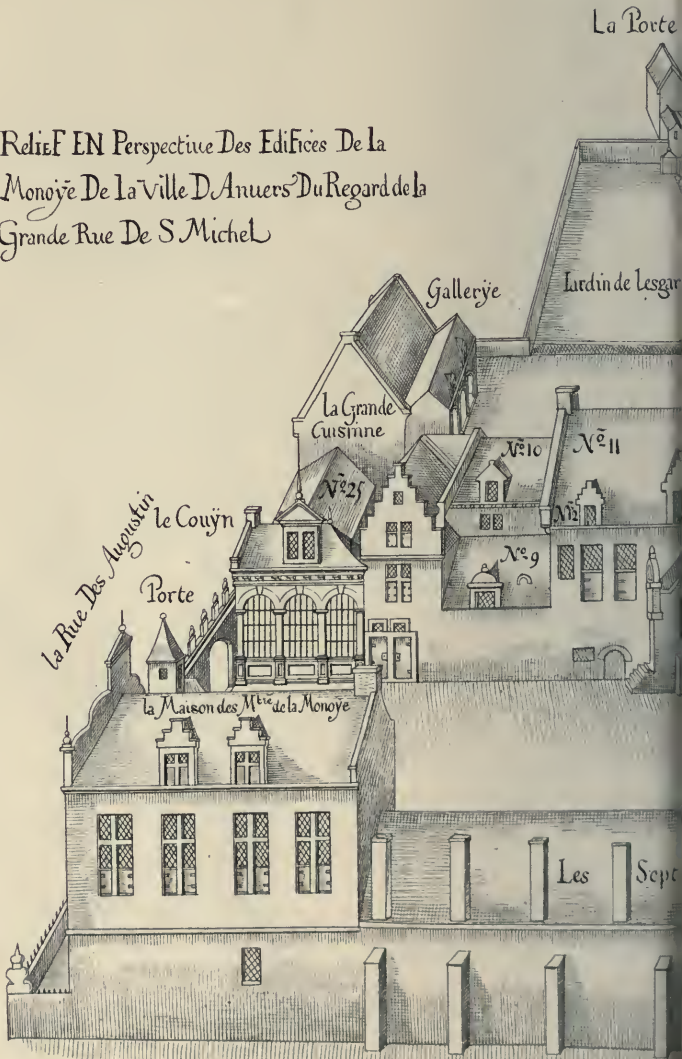 La Porte
ReliEF EN Perspectiue Des EdiFices De la
Monoÿe De la Ville D Anuers Du Regard de la
Grande Rue De S Michel
Gallerÿe
Iardin de Lesgar
la Grande
Cuisinne
Nº 10
Nº 11
Nº 25
Nº 12
le Couÿn
Nº 9
la Rue Des Augustin
Porte
la Maison des Mtre de la Monoÿe
Les Sept